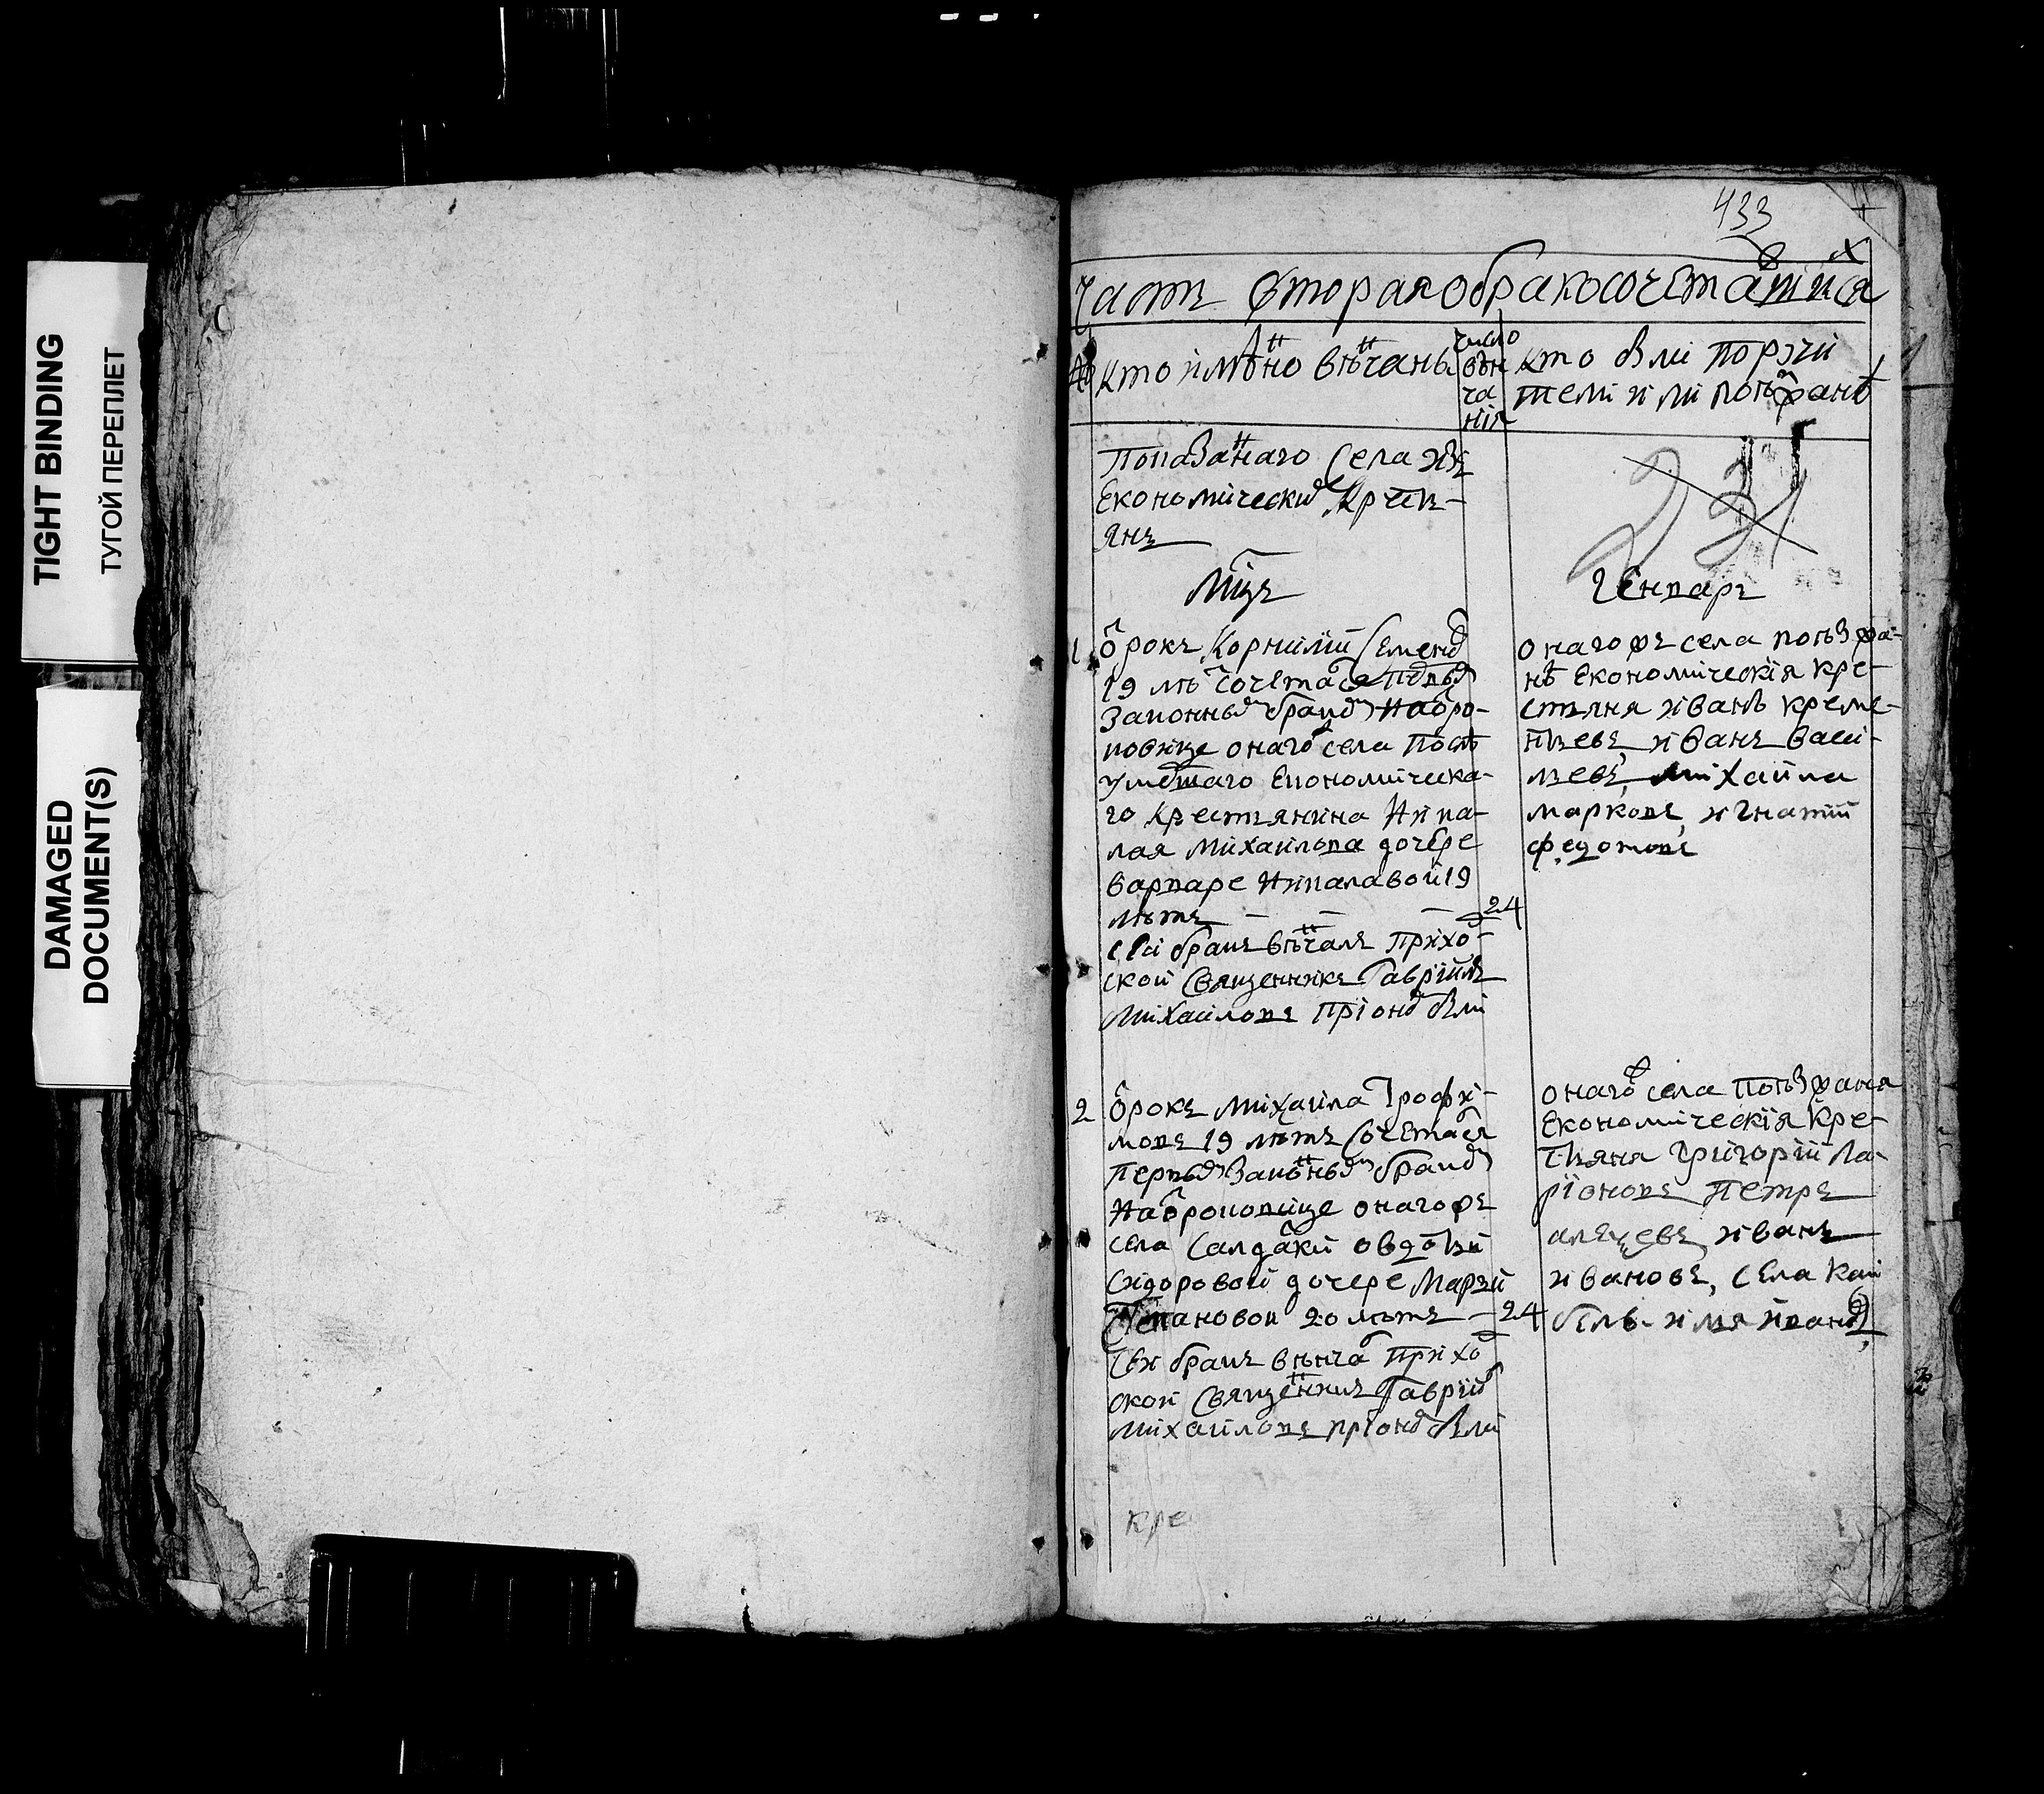 TIGHT BINDING
ТУГОЙ ПЕРЕПЛЕТ
DAMAGED
DOCUMENT(S)
433
Часть вторая о бракосочетавшихся
кто имянно венчаны
число
вѣн
ча
нія
кто были поручи
тели или поѣзжанѣ
Показаннаго села изъ
Економическихъ крестъ-
янъ
231
Мцъ
Генварь
1
отрокъ Корнилій Семеновъ
19 лѣ сочетася первымъ
законнымъ бракомъ на отро-
ковице онагожъ села послѣ
умершаго економическа-
го крестьянина Нико-
лая Михаилова дочере
варваре Николавой 19
лѣтъ
24
сей бракъ вѣнчалъ прихо-
ской священникъ Гавріилъ
Михаиловъ при ономъ были
онагожъ села поѣзжа-
нѣ економическія кре-
стьяня иванъ
иванъ васи-
льевъ, михаила
марковъ, игнатій
федотовъ
2
отрокъ михаила Трофи-
мовъ 19 лѣтъ сочетася
первымъ законнымъ бракомъ
на отроковице онагожъ
села салдатки овдотьи
Сидоровой дочере Марьи
Степановой 20 лѣтъ
24
сей бракъ вѣнчалъ прихо
ской священникъ Гавріилъ
Михаиловъ при ономъ были
онагожъ села поѣзжаня
економическія кре-
стьяня Григорій Ла-
ріоновъ Петръ
иванъ
ивановъ, села
кре